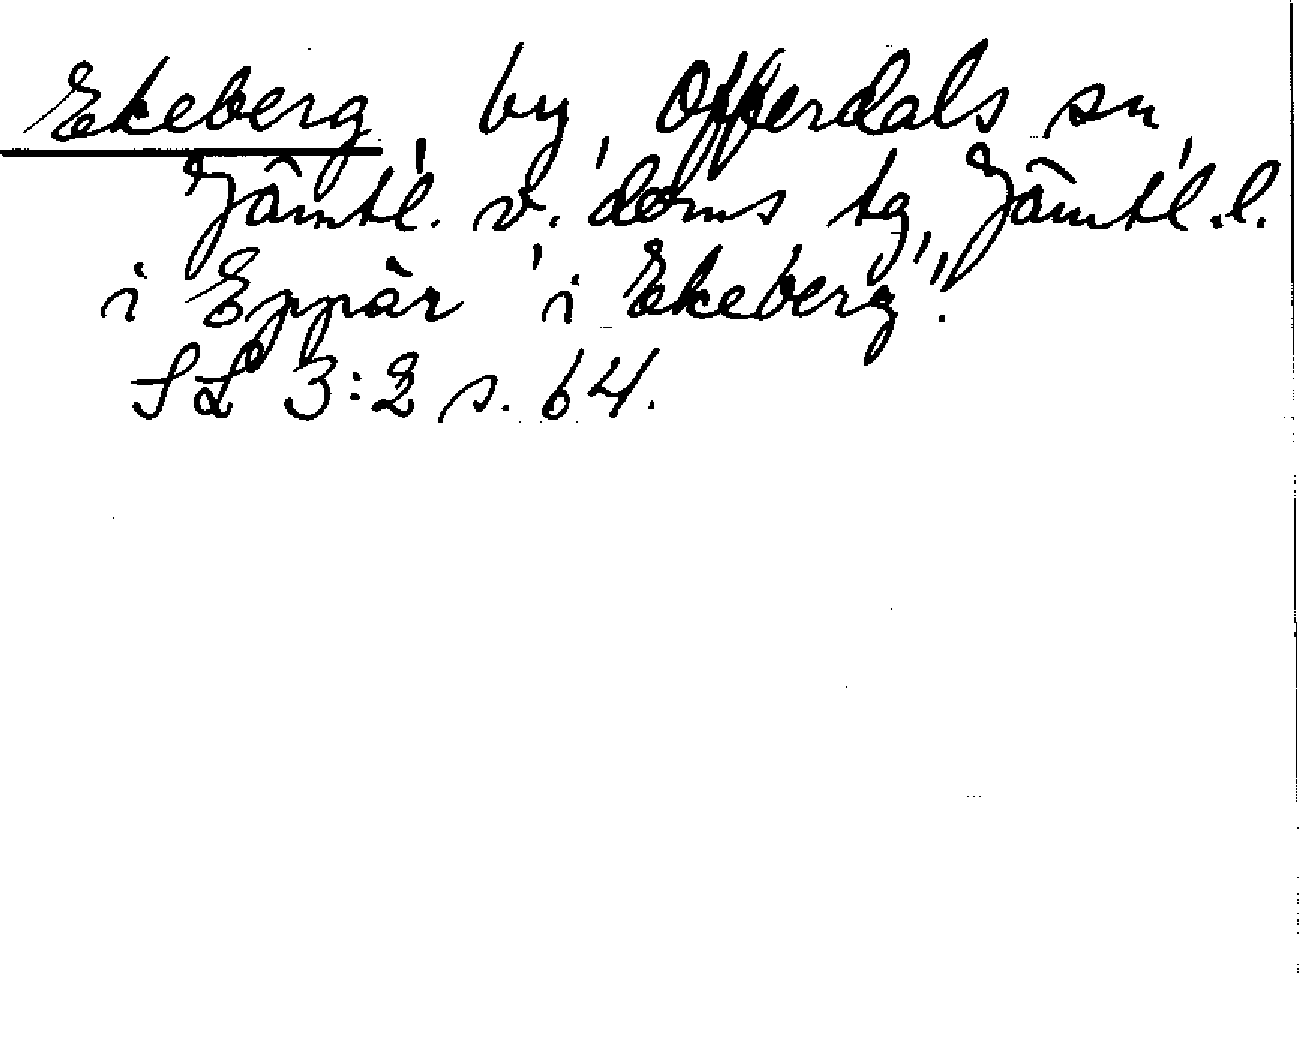 Ekeberg, by, Offerdals sn,
Jämtl. v. doms tg, Jämtl. l.
i Eppär 'i Ekeberg'".
SL 3:2 s. 64.